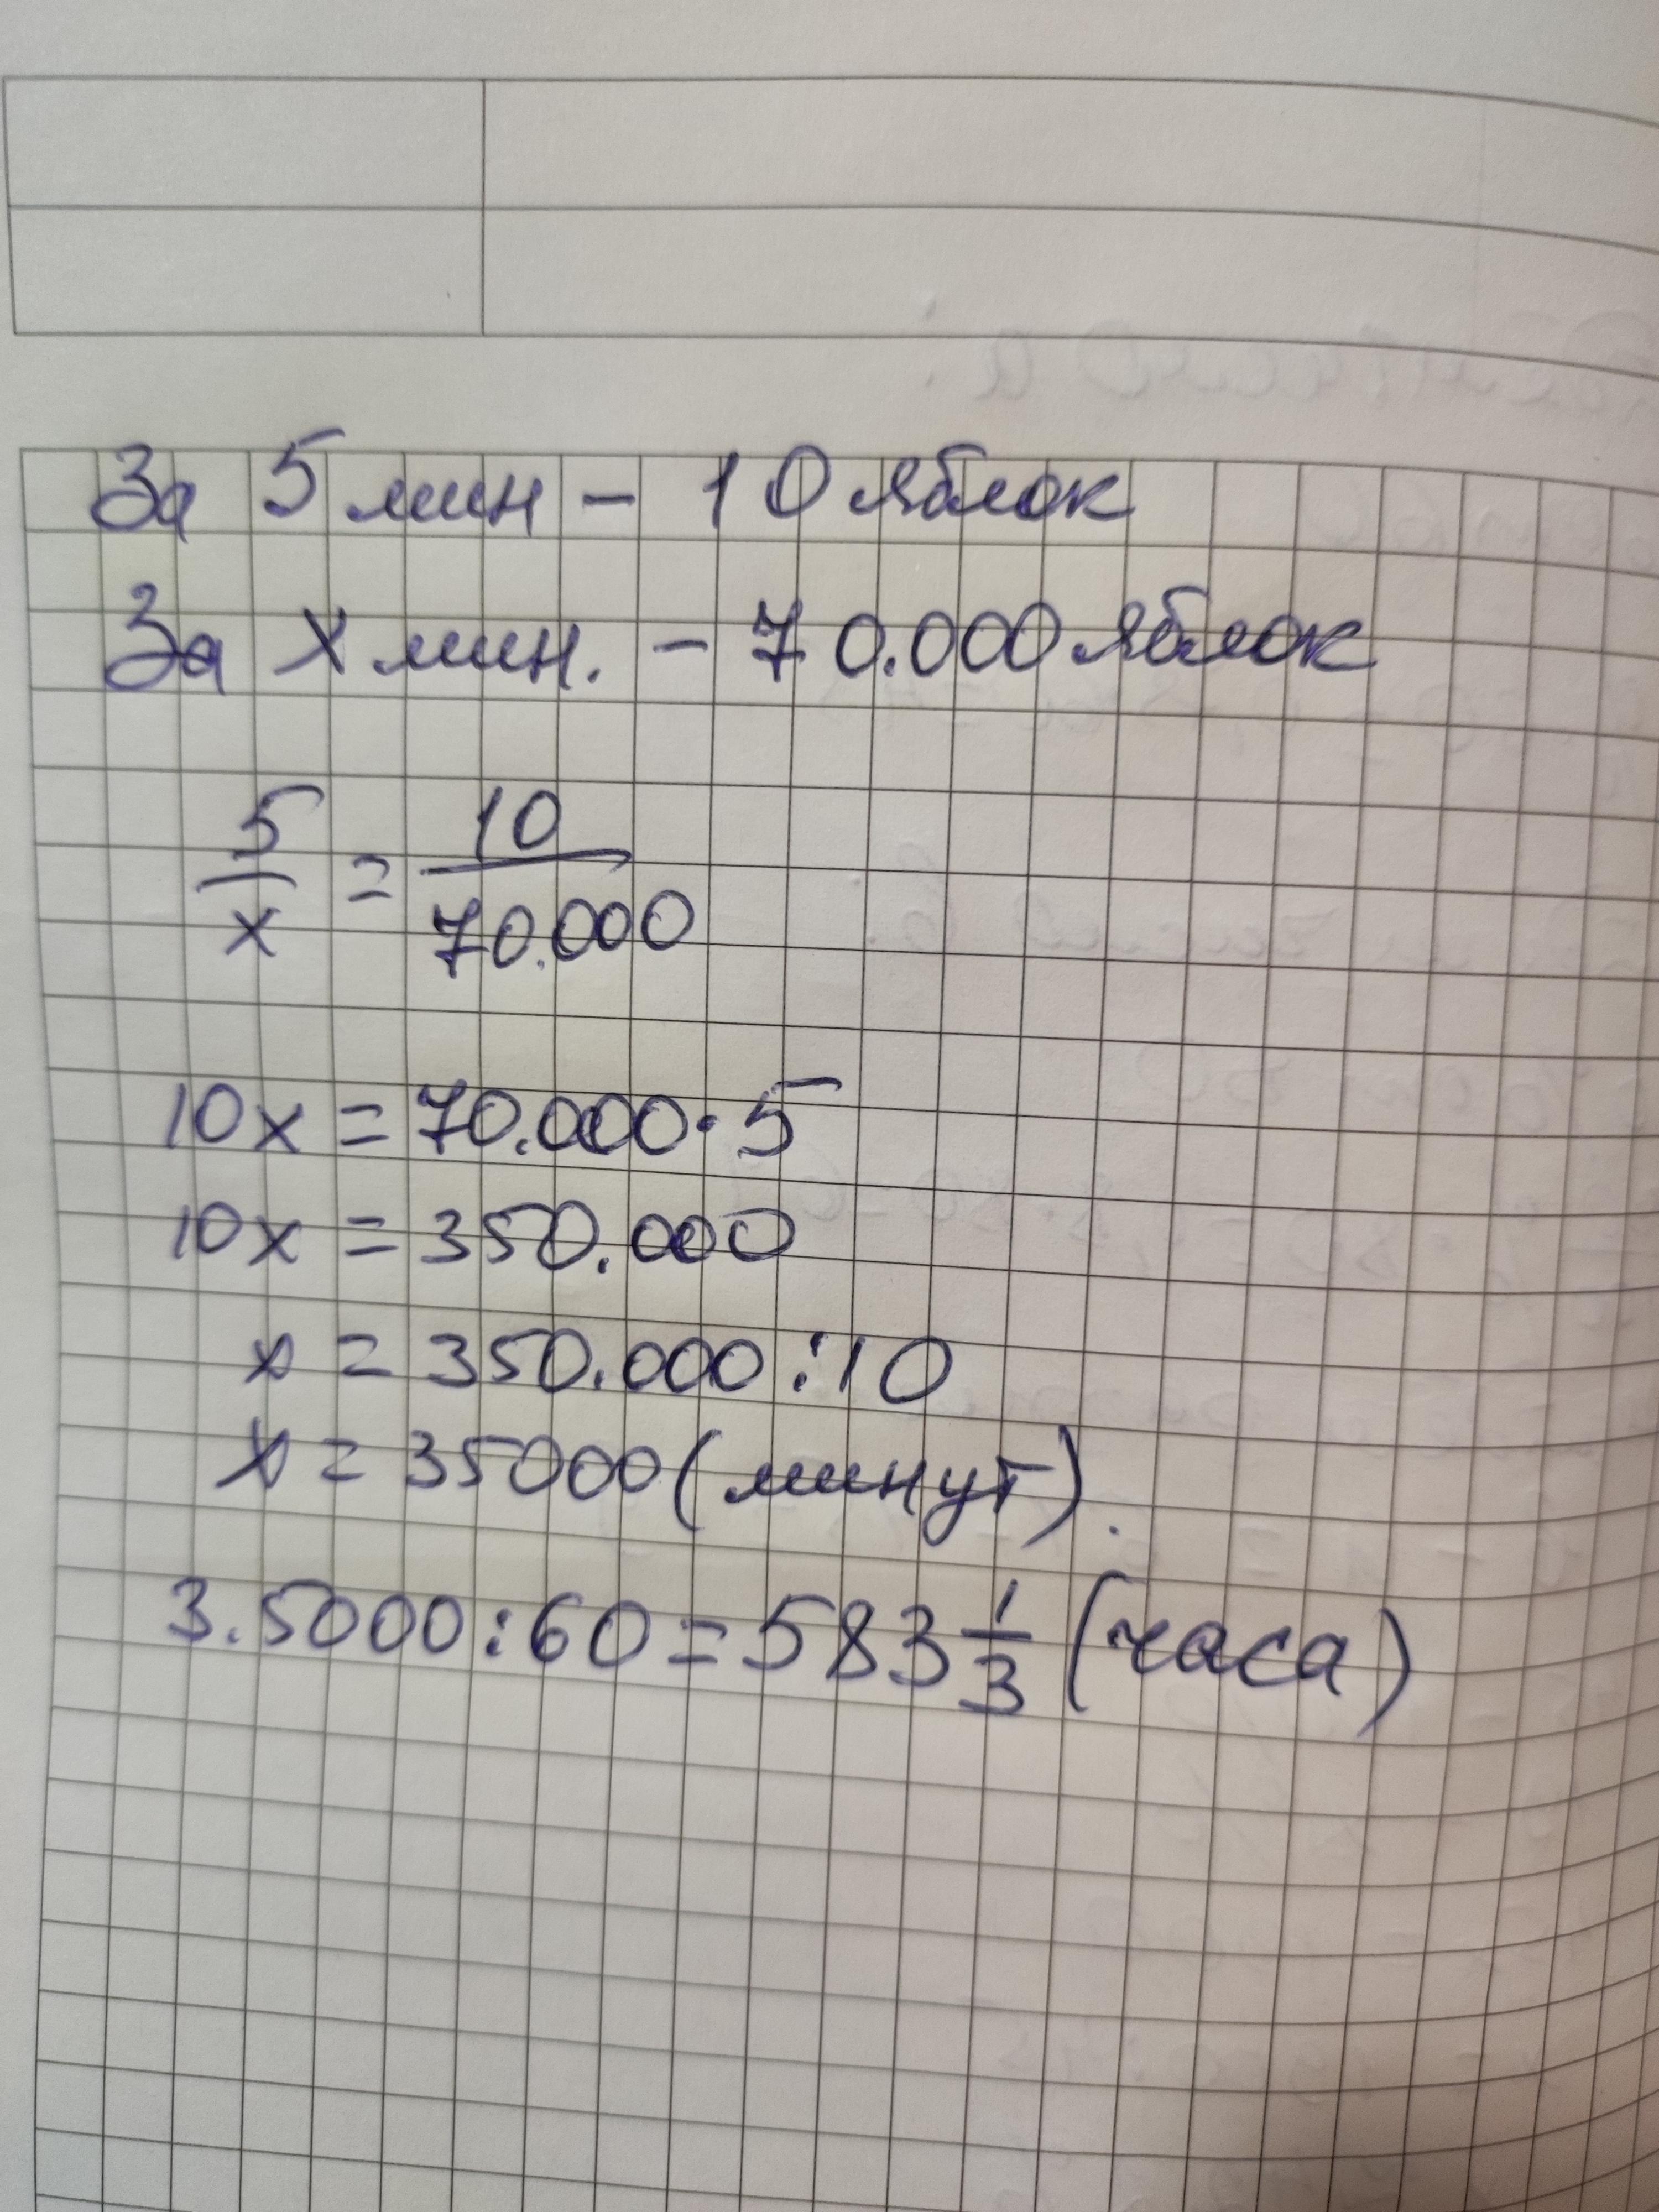 За 5 мин - 10 яблок
За x мин. - 70.000 яблок
5/x = 10/70.000
10x = 70.000·5
10x = 350.000
x = 350.000:10
x = 35000 (минут).
3.5000:60=583 1/3 (часа)